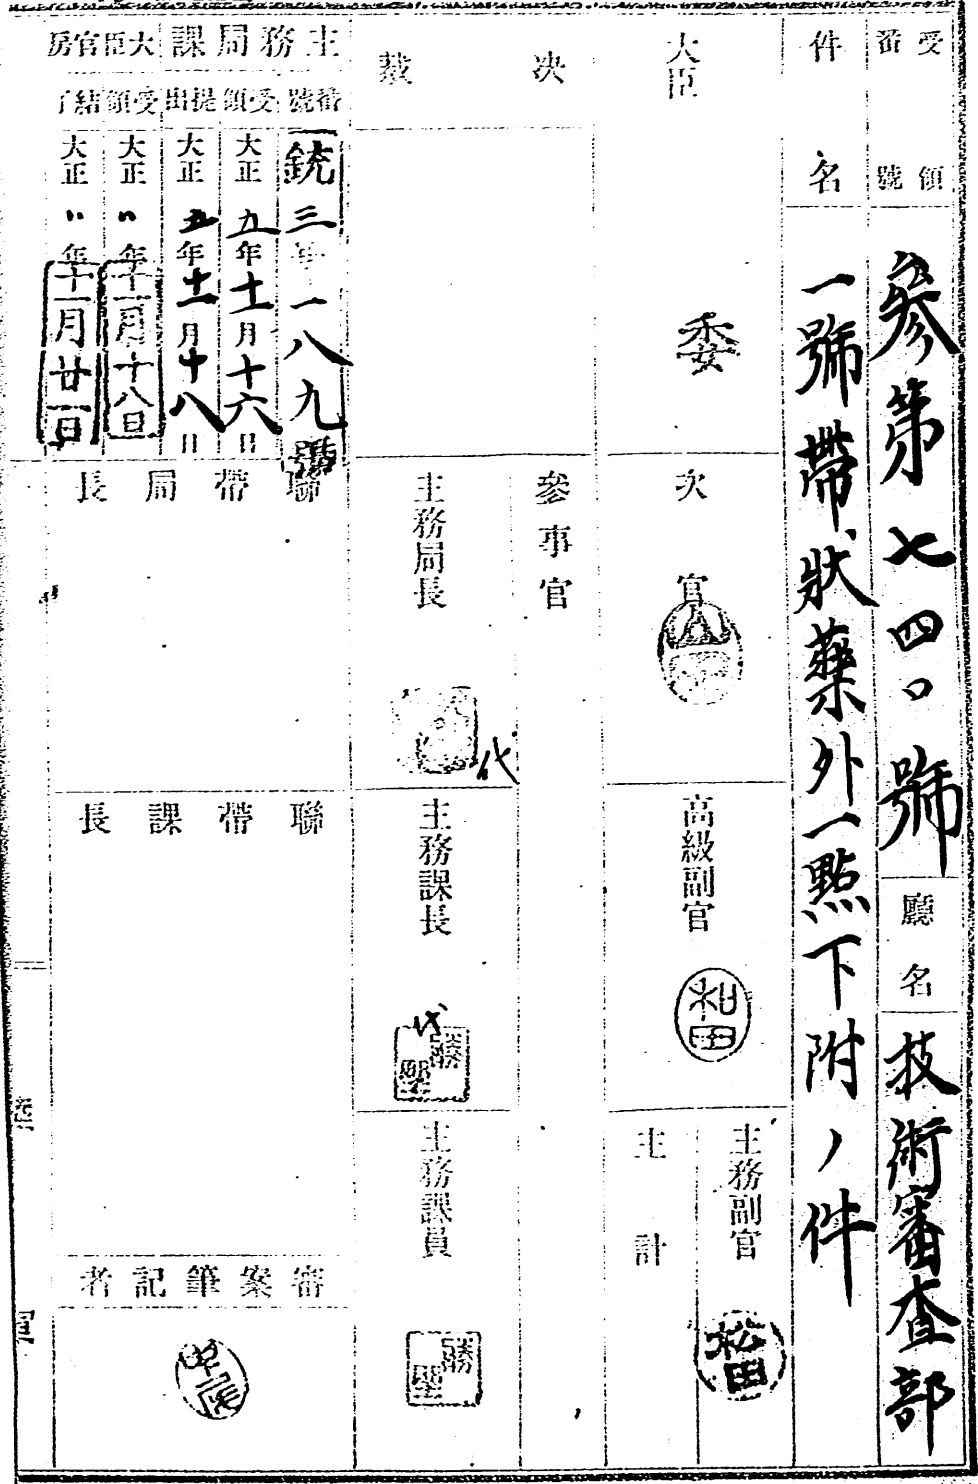 受領番號
參第七四〇號
廳名
技術審査部
件名
一號帶狀藥外一點下附ノ件
大臣
委
次官
高級副官
和田
主務副官
松田
主計
決裁
參事官
主務局長
代
主務課長
代
主務課員
主務局課
番號
銃三年一八九號
受領
大正五年十一月十六日
提出
大正五年十一月十八日
大臣官房
受領
大正〃年十一月十八日
結了
大正〃年十一月廿一日
聯帶局長
聯帶課長
審案筆記者
陸
軍